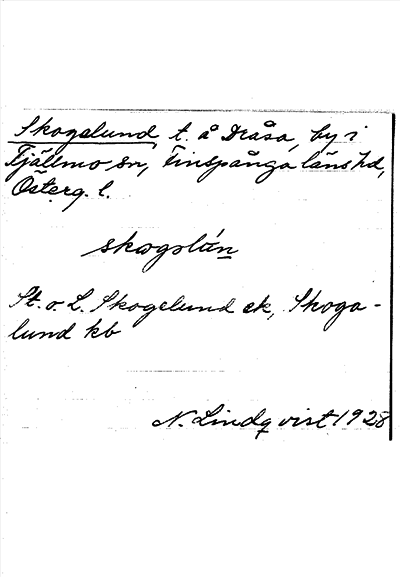 Skogslund, t. å Dråsa, by i
Tjällmo sn, Finspånga läns hd,
Österg. l.
skogslún
St. o L. Skogslund ek, Skogs-
lund kb
N. Lindqvist 1928